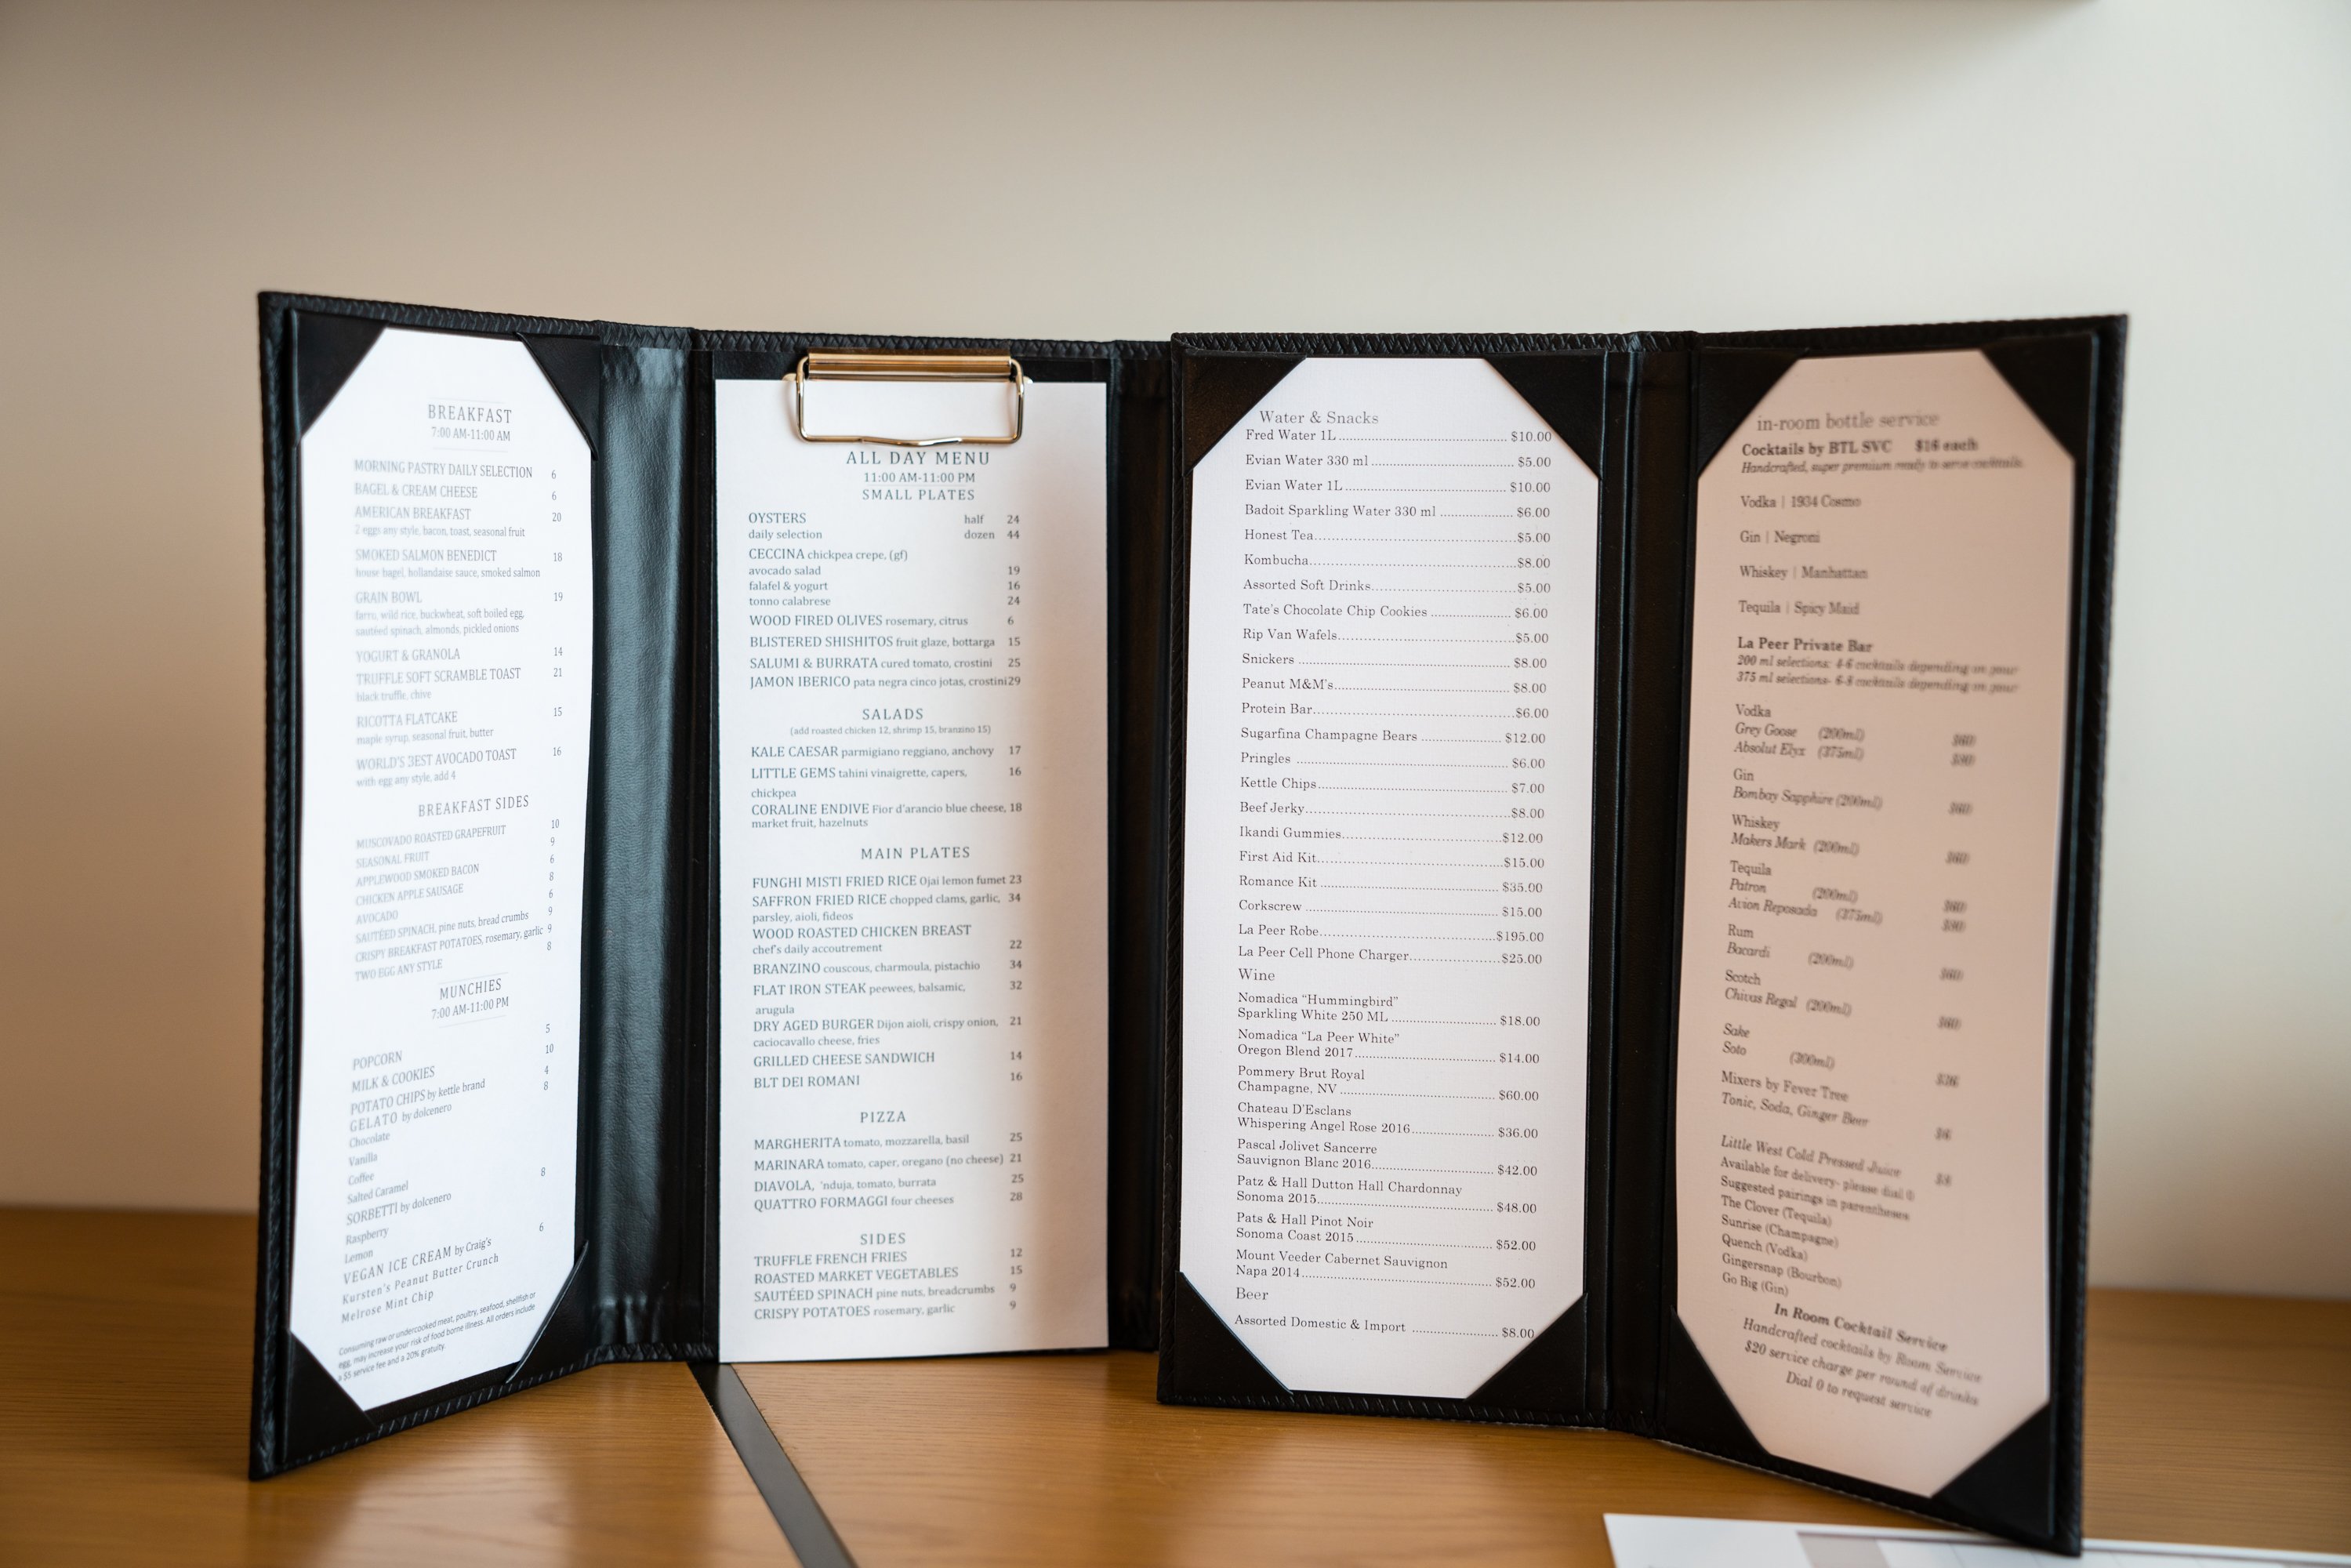 BREAKFAST
7:00 AM-11:00 AM
MORNING PASTRY DAILY SELECTION 6
BAGEL & CREAM CHEESE 6
AMERICAN BREAKFAST 20
2 eggs any style, bacon, toast, seasonal fruit
SMOKED SALMON BENEDICT 18
house bagel, hollandaise sauce, smoked salmon
GRAIN BOWL 19
farro, wild rice, buckwheat, soft boiled egg,
sautéed spinach, almonds, pickled onions
YOGURT & GRANOLA 14
TRUFFLE SOFT SCRAMBLE TOAST 21
black truffle, chive
RICOTTA FLATCAKE 15
maple syrup, seasonal fruit, butter
WORLD'S BEST AVOCADO TOAST 16
with egg any style, add 4
BREAKFAST SIDES
MUSCOVADO ROASTED GRAPEFRUIT 10
SEASONAL FRUIT 9
APPLEWOOD SMOKED BACON 6
CHICKEN APPLE SAUSAGE 8
AVOCADO 6
SAUTÉED SPINACH, pine nuts, bread crumbs 9
CRISPY BREAKFAST POTATOES, rosemary, garlic 9
TWO EGG ANY STYLE 8
MUNCHIES
7:00 AM-11:00 PM
POPCORN 5
MILK & COOKIES 10
POTATO CHIPS by kettle brand 4
GELATO by dolcenero 8
Chocolate
Vanilla
Coffee
Salted Caramel
SORBETTI by dolcenero 8
Raspberry
Lemon
VEGAN ICE CREAM by Craig's 6
Kursten's Peanut Butter Crunch
Melrose Mint Chip
Consuming raw or undercooked meat, poultry, seafood, shellfish or
egg, may increase your risk of food borne illness. All orders include
a $5 service fee and a 20% gratuity.
ALL DAY MENU
11:00 AM-11:00 PM
SMALL PLATES
OYSTERS half 24
daily selection dozen 44
CECCINA chickpea crepe, (gf)
avocado salad 19
falafel & yogurt 16
tonno calabrese 24
WOOD FIRED OLIVES rosemary, citrus 6
BLISTERED SHISHITOS fruit glaze, bottarga 15
SALUMI & BURRATA cured tomato, crostini 25
JAMON IBERICO pata negra cinco jotas, crostini29
SALADS
(add roasted chicken 12, shrimp 15, branzino 15)
KALE CAESAR parmigiano reggiano, anchovy 17
LITTLE GEMS tahini vinaigrette, capers, 16
chickpea
CORALINE ENDIVE Fior d'arancio blue cheese, 18
market fruit, hazelnuts
MAIN PLATES
FUNGHI MISTI FRIED RICE Ojai lemon fumet 23
SAFFRON FRIED RICE chopped clams, garlic, 34
parsley, aioli, fideos
WOOD ROASTED CHICKEN BREAST
chef's daily accoutrement 22
BRANZINO couscous, charmoula, pistachio 34
FLAT IRON STEAK peewees, balsamic, 32
arugula
DRY AGED BURGER Dijon aioli, crispy onion, 21
caciocavallo cheese, fries
GRILLED CHEESE SANDWICH 14
BLT DEI ROMANI 16
PIZZA
MARGHERITA tomato, mozzarella, basil 25
MARINARA tomato, caper, oregano (no cheese) 21
DIAVOLA, 'nduja, tomato, burrata 25
QUATTRO FORMAGGI four cheeses 28
SIDES
TRUFFLE FRENCH FRIES 12
ROASTED MARKET VEGETABLES 15
SAUTÉED SPINACH pine nuts, breadcrumbs 9
CRISPY POTATOES rosemary, garlic 9
Water & Snacks
Fred Water 1L $10.00
Evian Water 330 ml $5.00
Evian Water 1L $10.00
Badoit Sparkling Water 330 ml $6.00
Honest Tea $5.00
Kombucha $8.00
Assorted Soft Drinks $5.00
Tate's Chocolate Chip Cookies $6.00
Rip Van Wafels $5.00
Snickers $8.00
Peanut M&M's $8.00
Protein Bar $6.00
Sugarfina Champagne Bears $12.00
Pringles $6.00
Kettle Chips $7.00
Beef Jerky $8.00
Ikandi Gummies $12.00
First Aid Kit $15.00
Romance Kit $35.00
Corkscrew $15.00
La Peer Robe $195.00
La Peer Cell Phone Charger $25.00
Wine
Nomadica "Hummingbird"
Sparkling White 250 ML $18.00
Nomadica "La Peer White"
Oregon Blend 2017 $14.00
Pommery Brut Royal
Champagne, NV $60.00
Chateau D'Esclans
Whispering Angel Rose 2016 $36.00
Pascal Jolivet Sancerre
Sauvignon Blanc 2016 $42.00
Patz & Hall Dutton Hall Chardonnay
Sonoma 2015 $48.00
Pats & Hall Pinot Noir
Sonoma Coast 2015 $52.00
Mount Veeder Cabernet Sauvignon
Napa 2014 $52.00
Beer
Assorted Domestic & Import $8.00
in-room bottle service
Cocktails by BTL SVC $16 each
Handcrafted, super premium ready to serve cocktails.
Vodka | 1934 Cosmo
Gin | Negroni
Whiskey | Manhattan
Tequila | Spicy Maid
La Peer Private Bar
200 ml selections: 4-6 cocktails depending on your
375 ml selections- 6-8 cocktails depending on your
Vodka
Grey Goose (200ml) $60
Absolut Elyx (375ml) $90
Gin
Bombay Sapphire (200ml) $60
Whiskey
Makers Mark (200ml) $60
Tequila
Patron (200ml) $60
Avion Reposada (375ml) $90
Rum
Bacardi (200ml) $60
Scotch
Chivas Regal (200ml) $60
Sake
Soto (300ml)
Mixers by Fever Tree
Tonic, Soda, Ginger Beer $6
Little West Cold Pressed Juice
Available for delivery- please dial 0
Suggested pairings in parentheses
The Clover (Tequila)
Sunrise (Champagne)
Quench (Vodka)
Gingersnap (Bourbon)
Go Big (Gin)
In Room Cocktail Service
Handcrafted cocktails by Room Service
$20 service charge per round of drinks
Dial 0 to request service